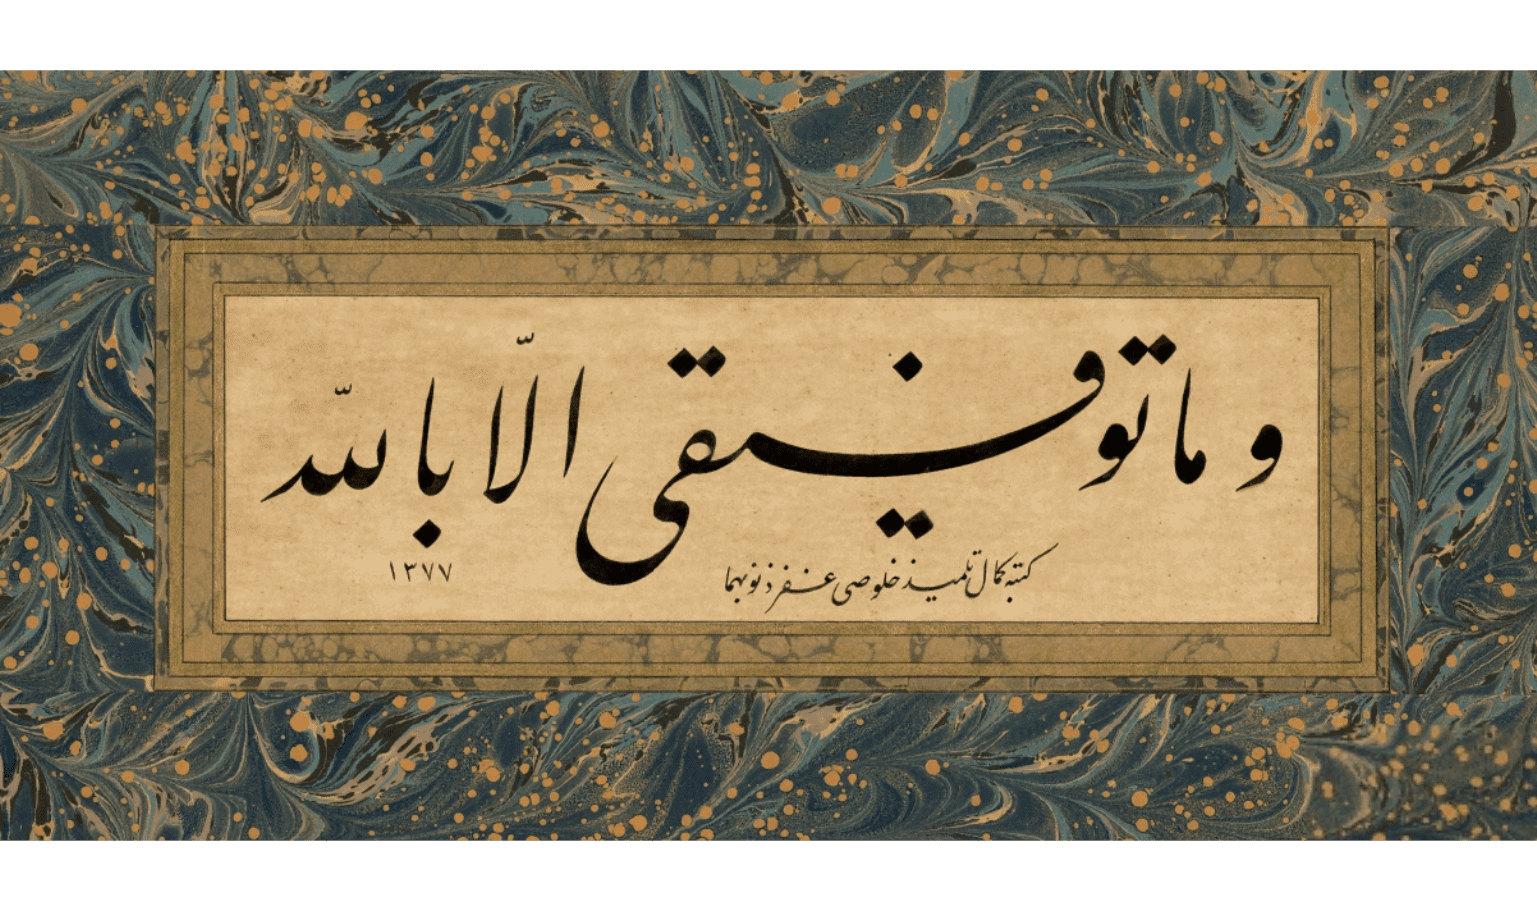 وما توفیقی الّا باللّٰه
کتبه کمال تلمیذ خلوصی غفر ذنوبهما
١٣٧٧